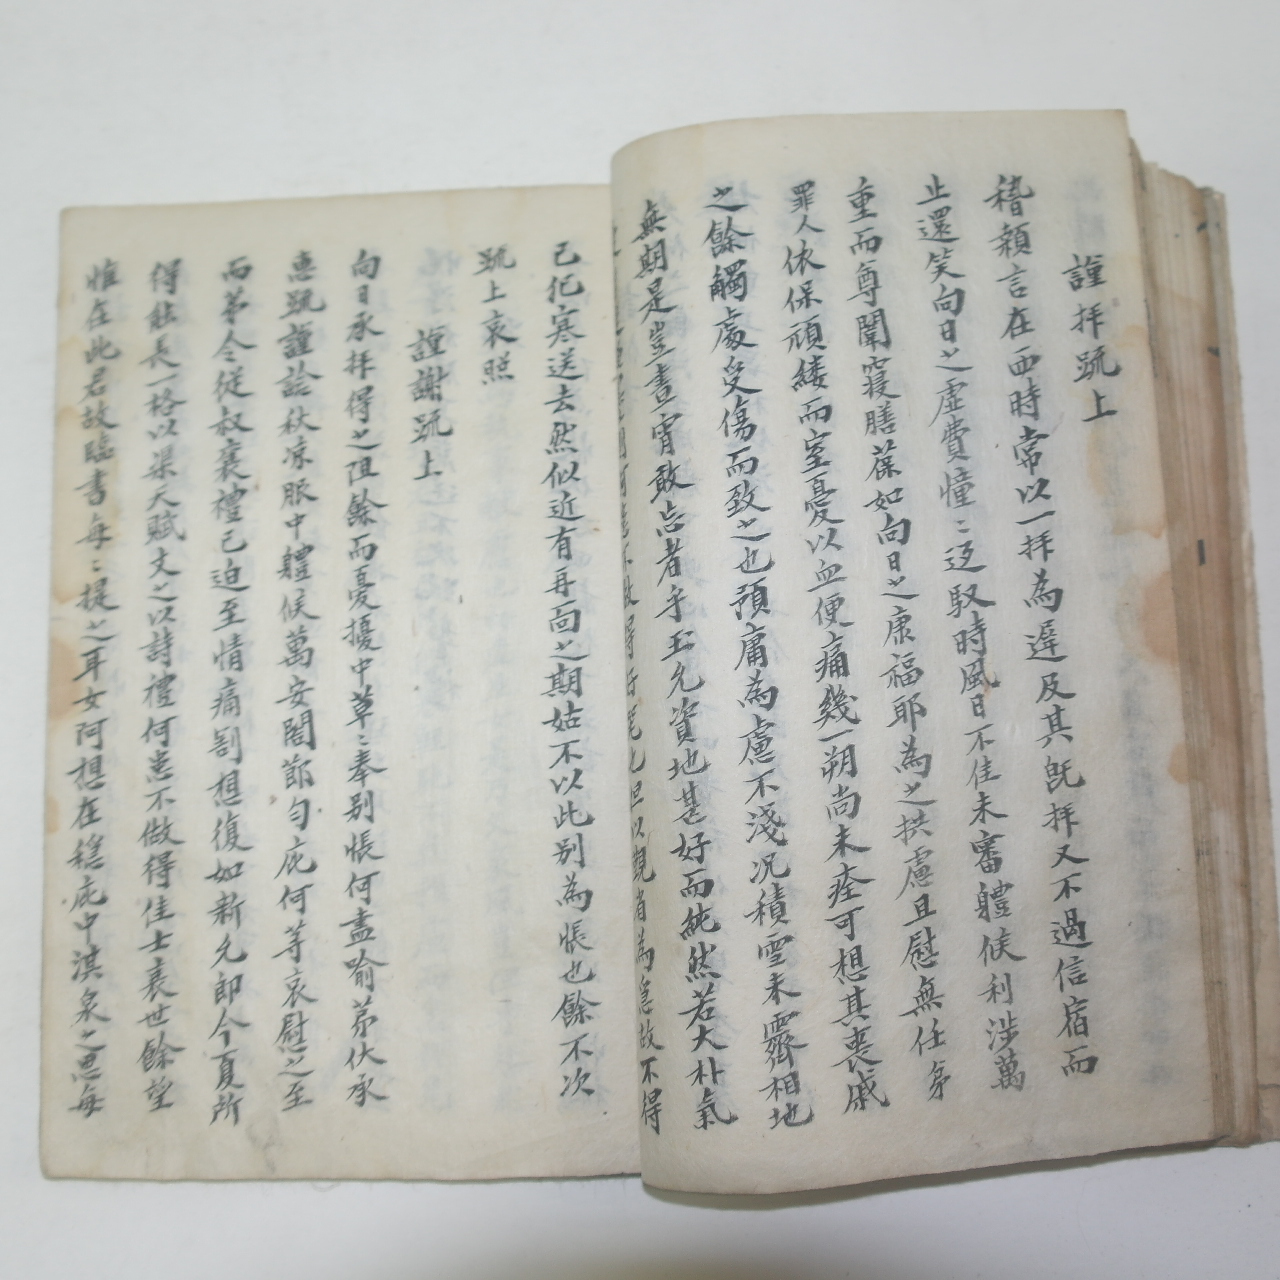 謹拜疏上
稽顙言在西時常以一拜為遲及其旣拜又不過信宿而
止還笑向日之虛費憧〻迓馭時風日不佳未審軆候利涉萬
重而尊闈寢膳葆如向日之康福耶為之拱慮且慰無任弟
罪人依保頑縷而室憂以血便痛幾一朔尚未痊可想其喪戚
之餘觸處受傷而致之也預庸為慮不淺况積雪未霽相地
無期是豈晝宵敢忘者乎玉允資地甚好而純然若大朴氣
觀者為 故不得
已犯寒送去然似近有再面之期姑不以此别為悵也餘不次
疏上哀照
謹謝疏上
向日承拜得之阻餘而憂擾中草〻奉别悵何盡喩苐伏承
惠疏謹諗秋凉服中軆候萬安閤節勻庇何等哀慰之至
而弟令從叔襄禮已迫至情痛割想復如新允郎今夏所
得能長一格以渠天賦文之以詩禮何患不做得佳士衰世餘望
惟在此君故臨書每〻提之耳女阿想在穩庇中淇泉之思每